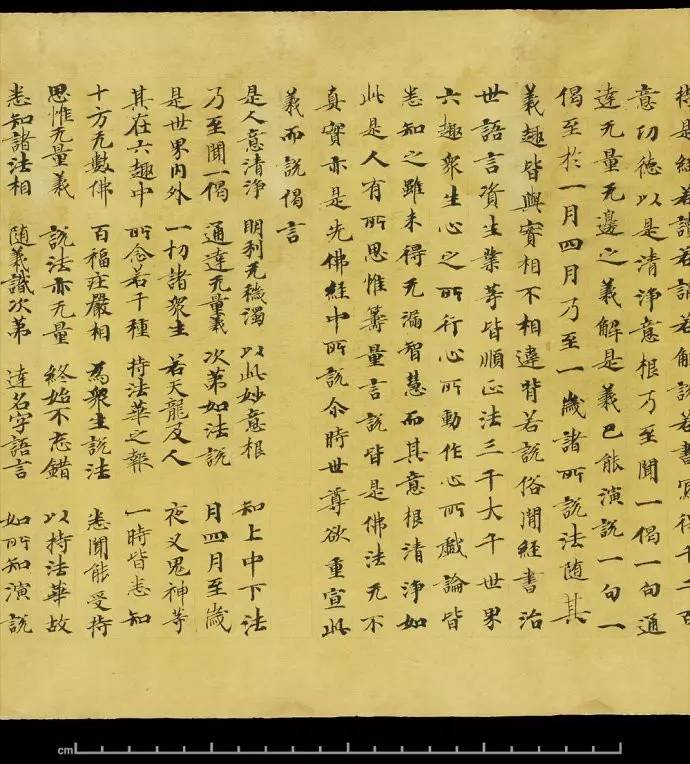 持是經若讀若誦若解說若書寫得千二百
意功德以是清淨意根乃至聞一偈一句通
達无量无邊之義解是義已能演說一句一
偈至於一月四月乃至一歲諸所說法隨其
義趣皆與實相不相違背若說俗閒經書治
世語言資生業等皆順正法三千大千世界
六趣衆生心之所行心所動作心所戲論皆
悉知之雖未得无漏智慧而其意根清淨如
此是人有所思惟籌量言說皆是佛法无不
真實亦是先佛經中所說尒時世尊欲重宣此
義而說偈言
是人意清淨 明利无穢濁 以此妙意根 知上中下法
乃至聞一偈 通達无量義 次第如法說 月四月至歲
是世界内外 一切諸衆生 若天龍及人 夜叉鬼神等
其在六趣中 所念若干種 持法華之報 一時皆悉知
十方无數佛 百福莊嚴相 為衆生說法 悉聞能受持
思惟无量義 說法亦无量 終始不忘錯 以持法華故
悉知諸法相 随義識次第 達名字語言 如所知演說
cm